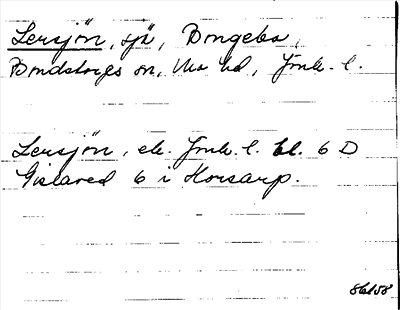 Lersjön, sjö, Bongebo,
Bondstorps sn, Mo hd, Jönk. l.
Lersjön, ek. Jönk. l. bl. 6 D
Gislaved 6 i Horsarp.